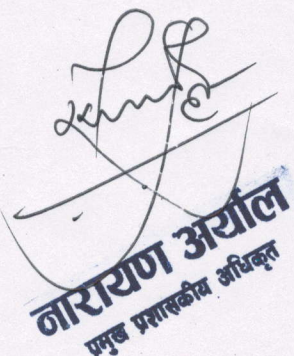 नारायण अर्याल
प्रमुख प्रशासकीय अधिकृत